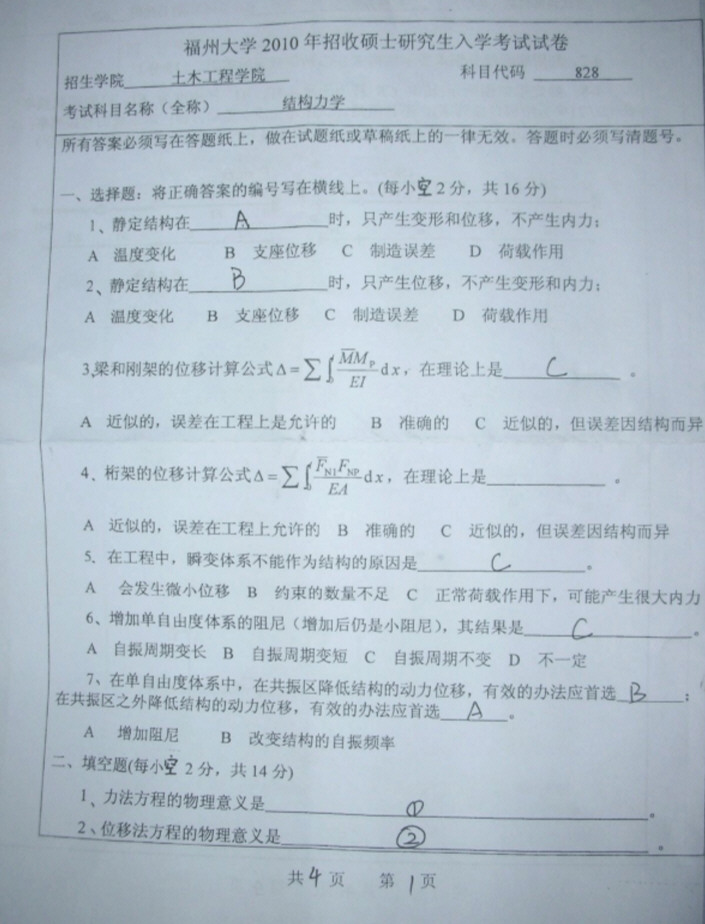 福州大学 2010 年招收硕士研究生入学考试试卷
招生学院 土木工程学院 科目代码 828
考试科目名称（全称） 结构力学
所有答案必须写在答题纸上，做在试题纸或草稿纸上的一律无效。答题时必须写清题号。
一、选择题：将正确答案的编号写在横线上。(每小空2分，共16分)
1、静定结构在 A 时，只产生变形和位移，不产生内力；
A 温度变化 B 支座位移 C 制造误差 D 荷载作用
2、静定结构在 B 时，只产生位移，不产生变形和内力；
A 温度变化 B 支座位移 C 制造误差 D 荷载作用
3、梁和刚架的位移计算公式 Δ=∑∫ M̅M_P/EI dx，在理论上是 C 。
A 近似的，误差在工程上是允许的 B 准确的 C 近似的，但误差因结构而异
4、桁架的位移计算公式 Δ=∑∫ F̅_N1F_NP/EA dx，在理论上是 。
A 近似的，误差在工程上允许的 B 准确的 C 近似的，但误差因结构而异
5. 在工程中，瞬变体系不能作为结构的原因是 C 。
A 会发生微小位移 B 约束的数量不足 C 正常荷载作用下，可能产生很大内力
6、增加单自由度体系的阻尼（增加后仍是小阻尼），其结果是 C 。
A 自振周期变长 B 自振周期变短 C 自振周期不变 D 不一定
7、在单自由度体系中，在共振区降低结构的动力位移，有效的办法应首选 B ；
在共振区之外降低结构的动力位移，有效的办法应首选 A 。
A 增加阻尼 B 改变结构的自振频率
二、填空题(每小空2分，共14分)
1、力法方程的物理意义是 ① 。
2、位移法方程的物理意义是 ② 。
共4页 第1页